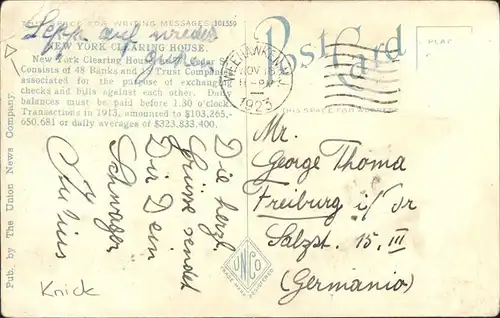 THIS SPACE FOR WRITING MESSAGES 101559
auf
NEW YORK CLEARING HOUSE.
New York Clearing House
Consists of 48 Banks and Trust Companies
associated for the purpose of exchanging
checks and bills against each other. Daily
balances must be paid before 1.30 o'clock.
Transactions in 1913, amounted to $103,265,-
650,681 or daily averages of $323,833.400.
Die herzl.
Grüsse sendet
Dir Dein
Schwager
Julius
Knick
Pub. by The Union News Company
Post Card
PLACE
WEEHAWKEN
NOV
1923
THIS SPACE FOR
Mr.
George Thoma
Freiburg i/Br
Salzst. 15. III
(Germania)
UN Co